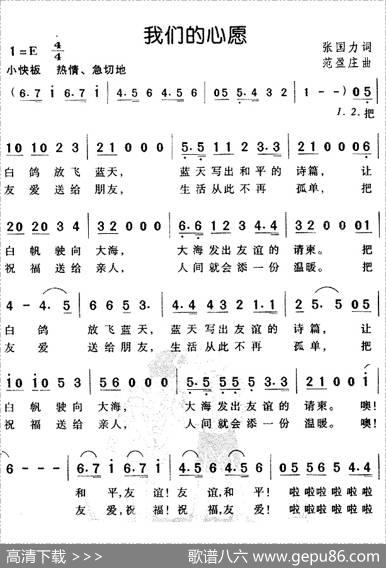 我们的心愿
1=E 4/4
张国力词
小快板 热情、急切地
范盈庄曲
(6·7 i 6·7 i | 4·5 6 4·5 6 | 05 05 4·5 3·2 | 1 - -) 05 |
1.2.把
10 10 02 3 | 21 0 0 0 | 5·5 11 23·3 | 21 0 0 06 |
白鸽放飞蓝天, 蓝天写出和平的诗篇, 让
友爱送给朋友, 生活从此不再孤单, 把
20 20 03 4 | 32 0 0 0 | 6·6 12 3 4·4 | 32 0 0 01 |
白帆驶向大海, 大海发出友谊的请柬。 把
祝福送给亲人, 人间就会添一份温暖。 把
4 - 4· 5 | 66 5 3· | 4·4 43 21·1 | 2 5· 05 05 |
白鸽放飞蓝天, 蓝天写出友谊的诗篇, 让
友爱送给朋友, 生活从此不再孤单, 把
10 10 05 3 | 56 0 0 0 | 5·5 55 53·5 | 21 0 0 i |
白帆驶向大海, 大海发出友谊的请柬。 噢!
祝福送给亲人, 人间就会添一份温暖。 噢!
6 - - 6·7 | i 6·7 i 4·5 | 6 4·5 6 0 | 56 56 56 56 |
和平,友谊!友谊,和平! 啦啦啦啦啦啦啦啦
友爱,祝福!祝福,友爱! 啦啦啦啦啦啦啦啦
高清下载 >>>
歌谱八六 www.gepu86.com